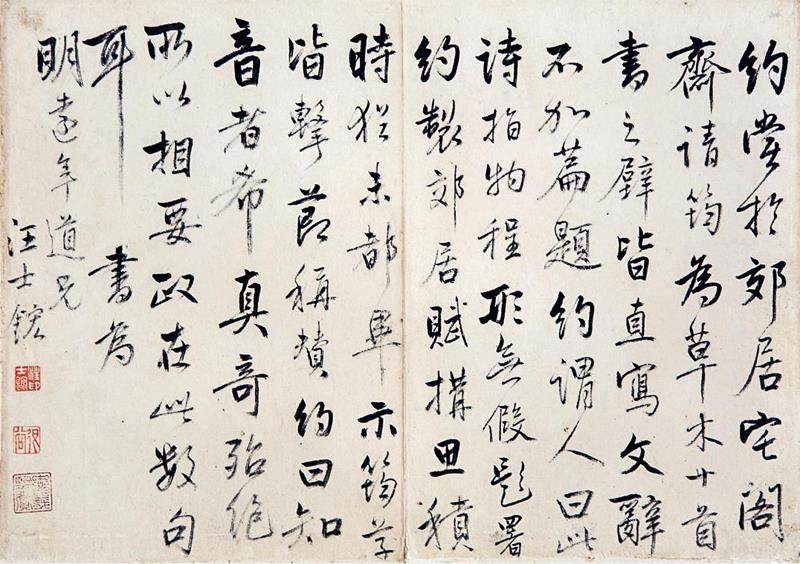 約嘗於郊居宅閣
齋請筠為草木十首
書之壁皆直寫文辭
不加篇題約謂人曰此
詩指物程形無假題署
約製郊居賦搆思積
時猶未都畢示筠草
皆擊節稱讚約曰知
音者希真奇殆絶
所以相要政在此數句
耳 書為
明遠年道兄
汪士鋐